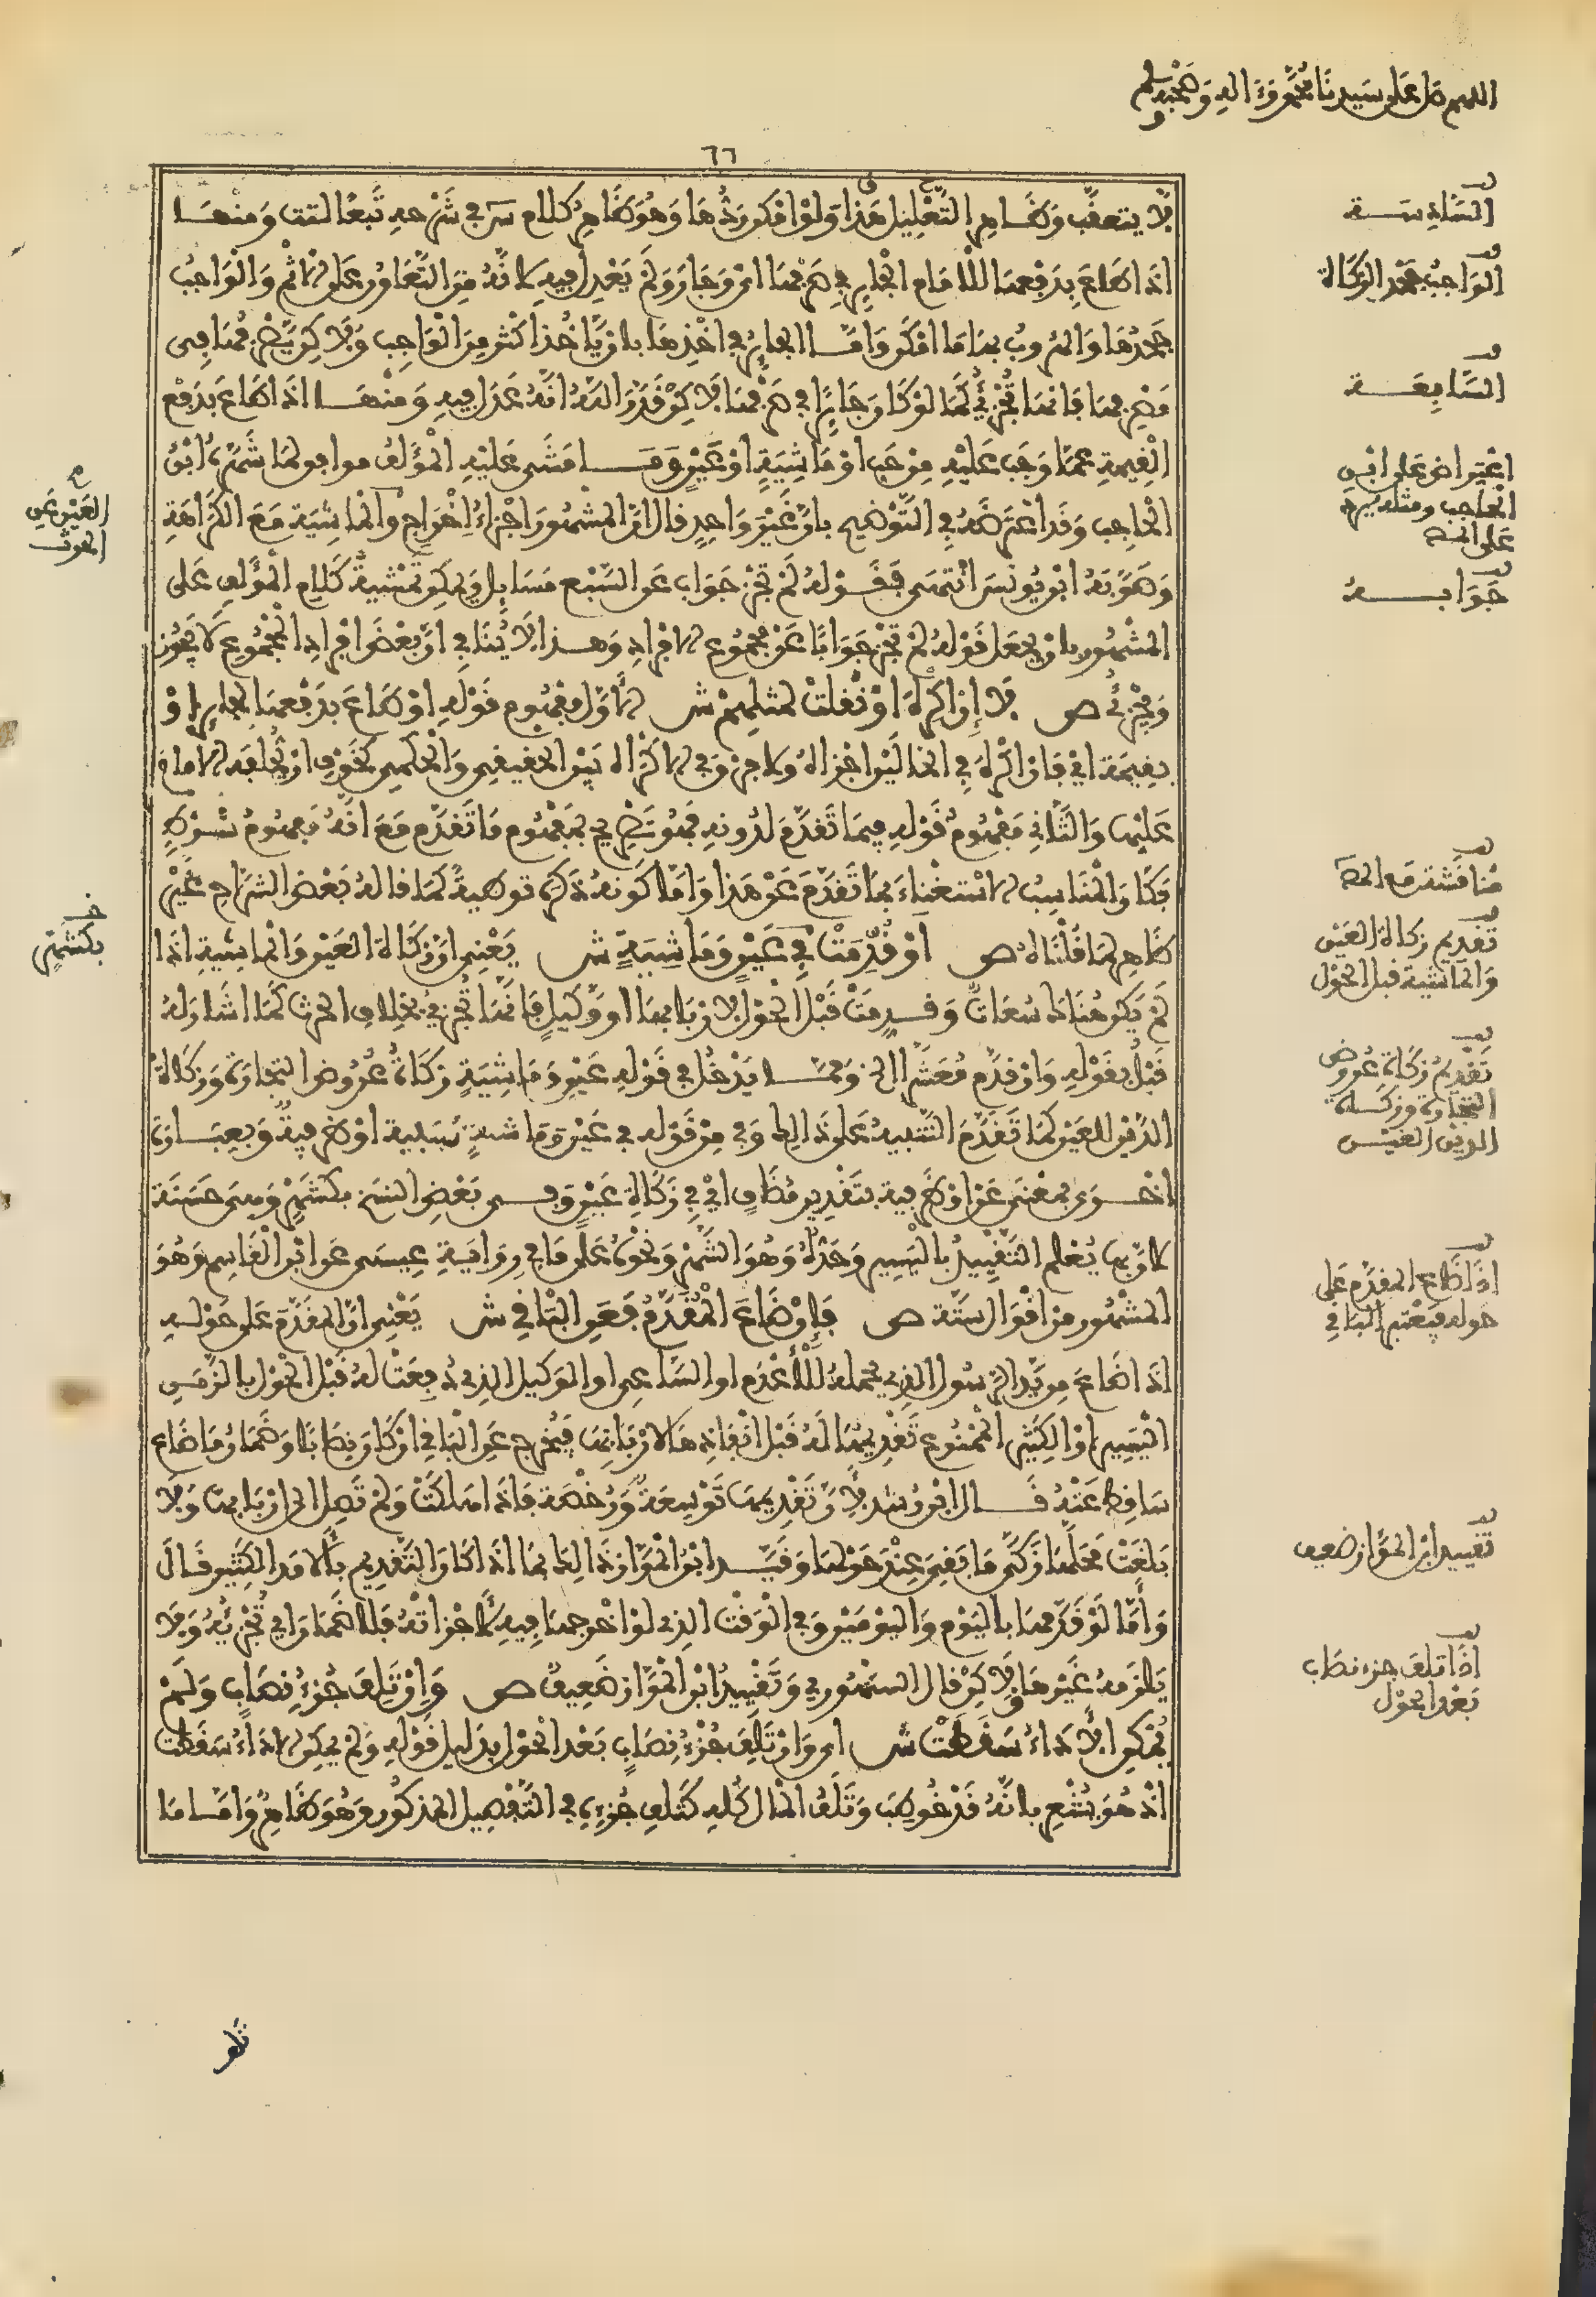 اللهم صل على سيدنا محمد وءاله وصحبه وسلم
٦٦
فلا يتعقب وظاهر التعليل هذا ولو امكن ردها وهو ظاهر كلام س في شرحه تبعا لتت ومنها
اذا طاع بدفعها للامام الجاير في صرفها اي وجار ولم يعدل فيه لانه من التعاون على الاثم والواجب
جحدها والهروب بها ما امكن واما الجاير في اخذها بان ياخذ اكثر من الواجب ولاكن يصرفها في
مصرفها فانها تجزئ كما لو كان جايرا في صرفها لاكن قدر الله انه عدل فيه ومنها اذا طاع بدفع
القيمة عما وجب عليه من حب او ماشية او عين وما مشى عليه المؤلف موافق لما شهره ابن
الحاجب وقد اعترضه في التوضيح بان غير واحد قال ان المشهور اجزاء اخراج والماشية مع الكراهة
وصوبه ابن يونس انتهى فقوله لم تجز جواب عن السبع مسايل ويمكن تمشية كلام المؤلف على
المشهور بان يجعل قوله لم تجز جوابا عن مجموع الافراد وهذا لا ينافي ان بعض افراد المجموع لا يجوز
ويجزئ ص لا إن اكره او نقلت لمثلهم ش الاول مفهوم قوله او طاع بدفعها لجاير او
بقيمة اي فان اكره في الحالين اجزاه ولا فرق في الاكراه بين الحقيقي والحكمي كخوف ان يحلفه الامام
عليها والثاني مفهوم قوله فيما تقدم لدونهم فهو تصريح بمفهوم ما تقدم مع انه مفهوم شرط
فكان المناسب الاستغناء بما تقدم عن هذا واما كونه ذكره توطية كما قاله بعض الشراح غير
ظاهر لما قلناه ص او قدمت في عين وماشية ش يعني ان زكاة العين والماشية اذا
لم يكن هناك سعاة وقدمت قبل الحول لاربابها او وكيل فانها تجزئ بخلاف الحرث كما اشار له
قبل بقوله وان قدم معشرا الخ ومما يدخل في قوله عين وماشية زكاة عروض التجارة وزكاة
الدين للعين كما تقدم التنبيه على ذالك وفي من قوله في عين وماشية سببية او ظرفية وبعبارة
اخرى بمعنى عن او ظرفية بتقدير مضاف اي في زكاة عين وفي بعض النسخ بكشهر وهي حسنة
لان بها يعلم التقييد باليسير وحده وهو الشهر ونحوه على ما في رواية عيسى عن ابن القاسم وهو
المشهور من اقوال ستة ص فإن ضاع المقدم فعن الباقي ش يعني ان المقدم على حوله
اذا ضاع من يد الرسول الذي يحمله للاعدم او الساعي او الوكيل الذي دفعت له قبل الحول بالزمن
اليسير او الكثير الممنوع تقديمها له قبل انفاذها لاربابها فيخرج عن الباقي ان كان نصابا وهما وما ضاع
ساقط عنه قال ابن رشد لان تقديمها توسعة ورخصة فاذا هلكت ولم تصل الى اربابها ولا
بلغت محلها زكى ما بقي عند حولها وقيد ابن المواز ذالك بما اذا كان التقديم بالامد الكثير قال
واما لو قدمها باليوم واليومين وفي الوقت الذي لو اخرجها فيه لاجزاته فلا ضمان واي تجزئه ولا
يلزمه غيرها لاكن قال السنهوري وتقييد ابن المواز ضعيف ص وإن تلف جزء نصاب ولم
يمكن الأداء سقطت ش اي وان تلف جزء نصاب بعد الحول بدليل قوله ولم يمكن الاداء سقطت
اذ هو يشعر بانه قد خوطب وتلف المال كله كتلف جزءه في التفصيل المذكور وهو ظاهر واما ما
تلف
السادسة
الواجب جحد الزكاة
السابعة
اعتراض على ابن
الحاجب ومثله يرد
على المص
جوابه
مناقشة مع المص
تقديم زكاة العين
والماشية قبل الحول
تقديم زكاة عروض
التجارة وزكاة
الدين العين
اذا ضاع المقدم على
حوله فيعتبر الباقي
تقييد ابن المواز ضعيف
اذا تلف جزء نصاب
بعد الحول
العين عن
الحرث
خ
بكشهر